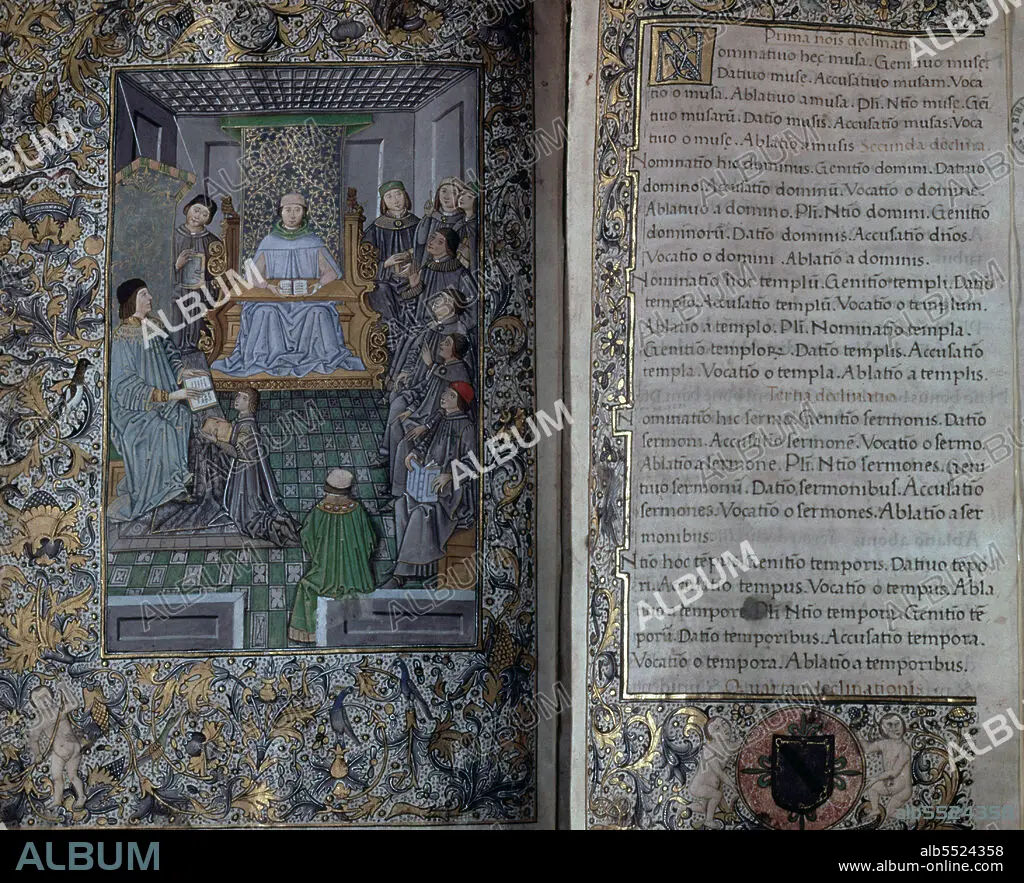 Prima nois declinatio
Nominatiuo hęc musa. Genitiuo musę.
Datiuo musę. Accusatiuo musam. Voca
tio o musa. Ablatiuo a musa. Pli. Ntio musę. Geni
tiuo musarū. Datio musis. Accusatio musas. Voca
tiuo o musę. Ablatio a musis Secunda declina.
Nominatio hic dominus. Genitio domini. Datiuo
domino. Accusatio dominū. Vocatio o domine.
Ablatiuo a domino. Pli. Ntio domini. Genitio
dominorū. Datio dominis. Accusatio dños.
Vocatio o domini. Ablatio a dominis.
Nominatio hoc templū. Genitio templi. Datio
templo. Accusatio templū. Vocatio o templum.
Ablatio a templo. Pli. Nominatio templa.
Genitio temploꝝ. Datio templis. Accusatio
templa. Vocatio o templa. Ablatio a templis.
Tertia declinatio
Nominatio hic sermo. Genitio sermonis. Datio
sermoni. Accusatio sermonē. Vocatio o sermo.
Ablatio a sermone. Pli. Ntio sermones. Geni
tiuo sermonū. Datio sermonibus. Accusatio
sermones. Vocatio o sermones. Ablatio a ser
monibus.
Ntio hoc tēpus. Genitio temporis. Datio tepo
ri. Accusatio tempus. Vocatio o tempus. Abla
tiuo a tempore. Pli Ntio tempora. Genitio tē
porū. Datio temporibus. Accusatio tempora.
Vocatio o tempora. Ablatio a temporibus.
Quarta declinationis
ALBUM
alb5524358
www.album-online.com